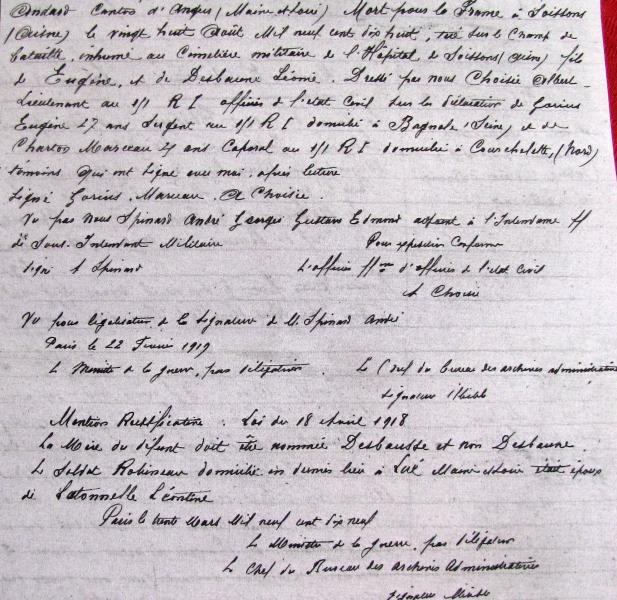 Andard Canton d'Angers (Maine et Loire) Mort pour la France à Soissons
(Aisne) le vingt huit Août Mil neuf cent dix huit, tué sur le Champ de
bataille, inhumé au Cimetière militaire de l'Hôpital de Soissons (Aisne) fils
de Eugène, et de Desbaune Léonie. Dressé par nous Choisie Albert
Lieutenant au 1/1 R I officier de l'état civil sur la déclaration de Garius
Eugène 27 ans Sergent au 1/1 R I domicilié à Bagnole (Seine) et de
Charlos Marceau 21 ans Caporal au 1/1 R I domicilié à Courchelette, (Nord)
temoins qui ont signé avec moi, après lecture
Signé Garius, Marceau, A Choisie.
Vu par Nous Spinard André Georges Gustave Edmond adjoint à l'Intendance ff
de Sous Intendant Militaire
Pour expedition Conforme
signé A Spinard
L'officier ff d'officier de l'état civil
A Choisie
Vu pour légalisation de la signature de M. Spinard André
Paris le 22 Fevrier 1919
Le Ministre de la guerre, par délégation.
Le Chef du bureau des archives administratives
signature illisible
Mention Rectificative. Loi du 18 Avril 1918
La Mère du défunt doit être nommée Desbausse et non Desbaune
Le Soldat Robineau domicilié en dernier lieu à Lué Maine et Loire était époux
de Latonnelle Léontine
Paris le trente Mars Mil neuf cent dix neuf
Le Ministre de la guerre, par délégation
Le Chef du Bureau des archives Administratives
signature